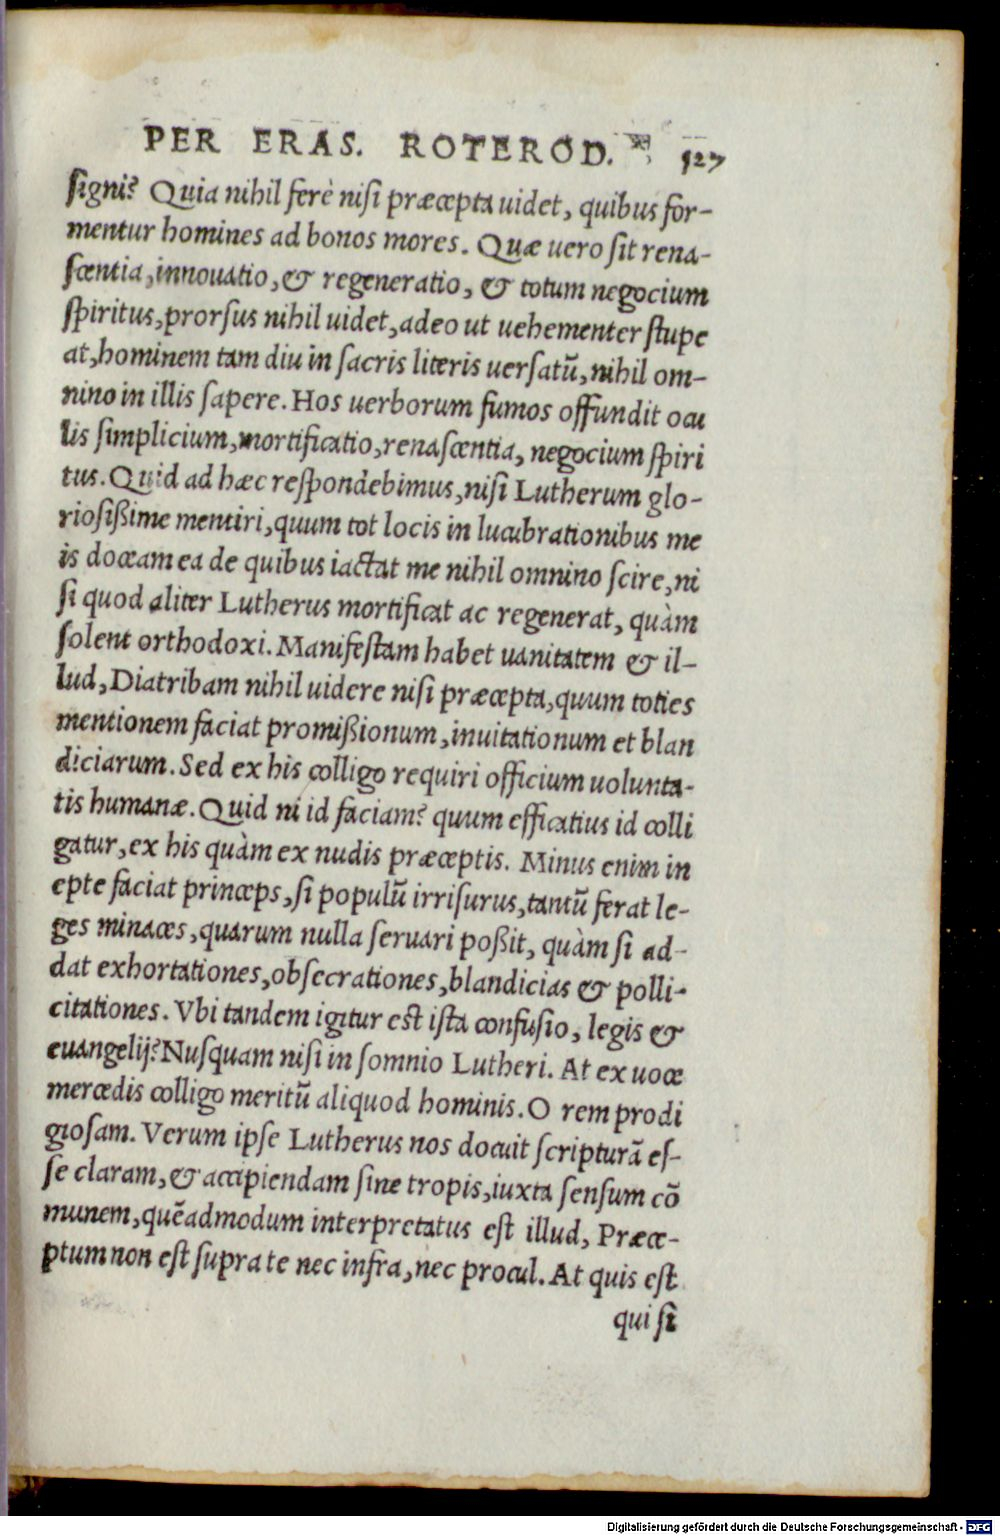 PER ERAS. ROTEROD. 527
signi? Quia nihil ferè nisi præcepta uidet, quibus for-
mentur homines ad bonos mores. Quæ uero sit rena-
scentia, innouatio, & regeneratio, & totum negocium
spiritus, prorsus nihil uidet, adeo ut uehementer stupe
at, hominem tam diu in sacris literis uersatū, nihil om-
nino in illis sapere. Hos uerborum fumos offundit ocu
lis simplicium, mortificatio, renascentia, negocium spiri
tus. Quid ad hæc respondebimus, nisi Lutherum glo-
riosißime mentiri, quum tot locis in lucubrationibus me
is doceam ea de quibus iactat me nihil omnino scire, ni
si quod aliter Lutherus mortificat ac regenerat, quàm
solent orthodoxi. Manifestam habet uanitatem & il-
lud, Diatribam nihil uidere nisi præcepta, quum toties
mentionem faciat promißionum, inuitationum et blan
diciarum. Sed ex his colligo requiri officium uolunta-
tis humanæ. Quid ni id faciam? quum efficatius id colli
gatur, ex his quàm ex nudis præceptis. Minus enim in
epte faciat princeps, si populū irrisurus, tantū ferat le-
ges minaces, quarum nulla seruari poßit, quàm si ad-
dat exhortationes, obsecrationes, blandicias & polli-
citationes. Vbi tandem igitur est ista confusio, legis &
euangelij? Nusquam nisi in somnio Lutheri. At ex uoce
mercedis colligo meritū aliquod hominis. O rem prodi
giosam. Verum ipse Lutherus nos docuit scripturā es-
se claram, & accipiendam sine tropis, iuxta sensum cō
munem, quēadmodum interpretatus est illud, Præce-
ptum non est supra te nec infra, nec procul. At quis est
qui si
Digitalisierung gefördert durch die Deutsche Forschungsgemeinschaft - DFG